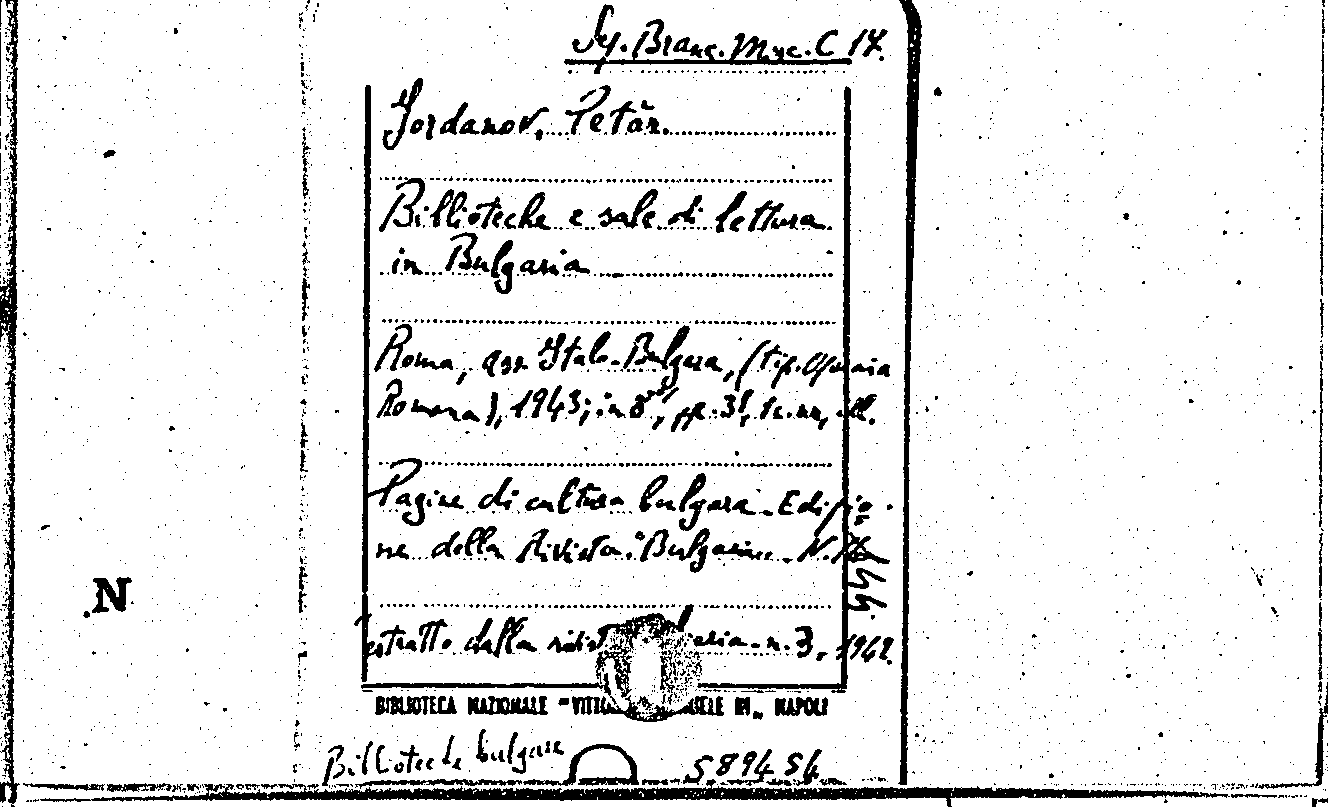 Sez. Branc. Misc. C 17.
Jordanov, Petăr.
Biblioteche e sale di lettura
in Bulgaria
Roma, ass. Italo-Bulgara, (tip. Operaia
Romana), 1943; in 8°, pp. 31, 1 c. nn, ill.
Pagine di cultura bulgara. Edizio-
ne della Rivista: "Bulgaria. N.
estratto dalla rivista n. 3, 1942.
BIBLIOTECA NAZIONALE "VITTORIO EMANUELE III" NAPOLI
Biblioteche bulgare 589456
N